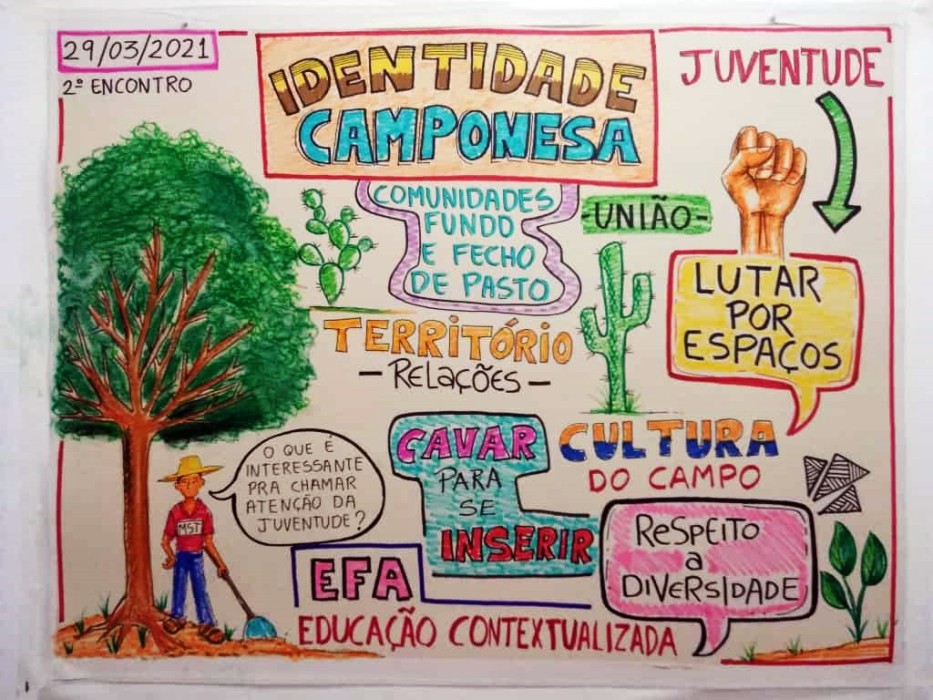 29/03/2021
2º ENCONTRO
IDENTIDADE
CAMPONESA
JUVENTUDE
COMUNIDADES
FUNDO
E FECHO
DE PASTO
-UNIÃO-
LUTAR
POR
ESPAÇOS
TERRITÓRIO
- RELAÇÕES -
CAVAR
PARA
SE
INSERIR
CULTURA
DO CAMPO
O QUE É
INTERESSANTE
PRA CHAMAR
ATENÇÃO DA
JUVENTUDE?
MST
RESPEITO
a
DIVERSIDADE
EFA
EDUCAÇÃO CONTEXTUALIZADA